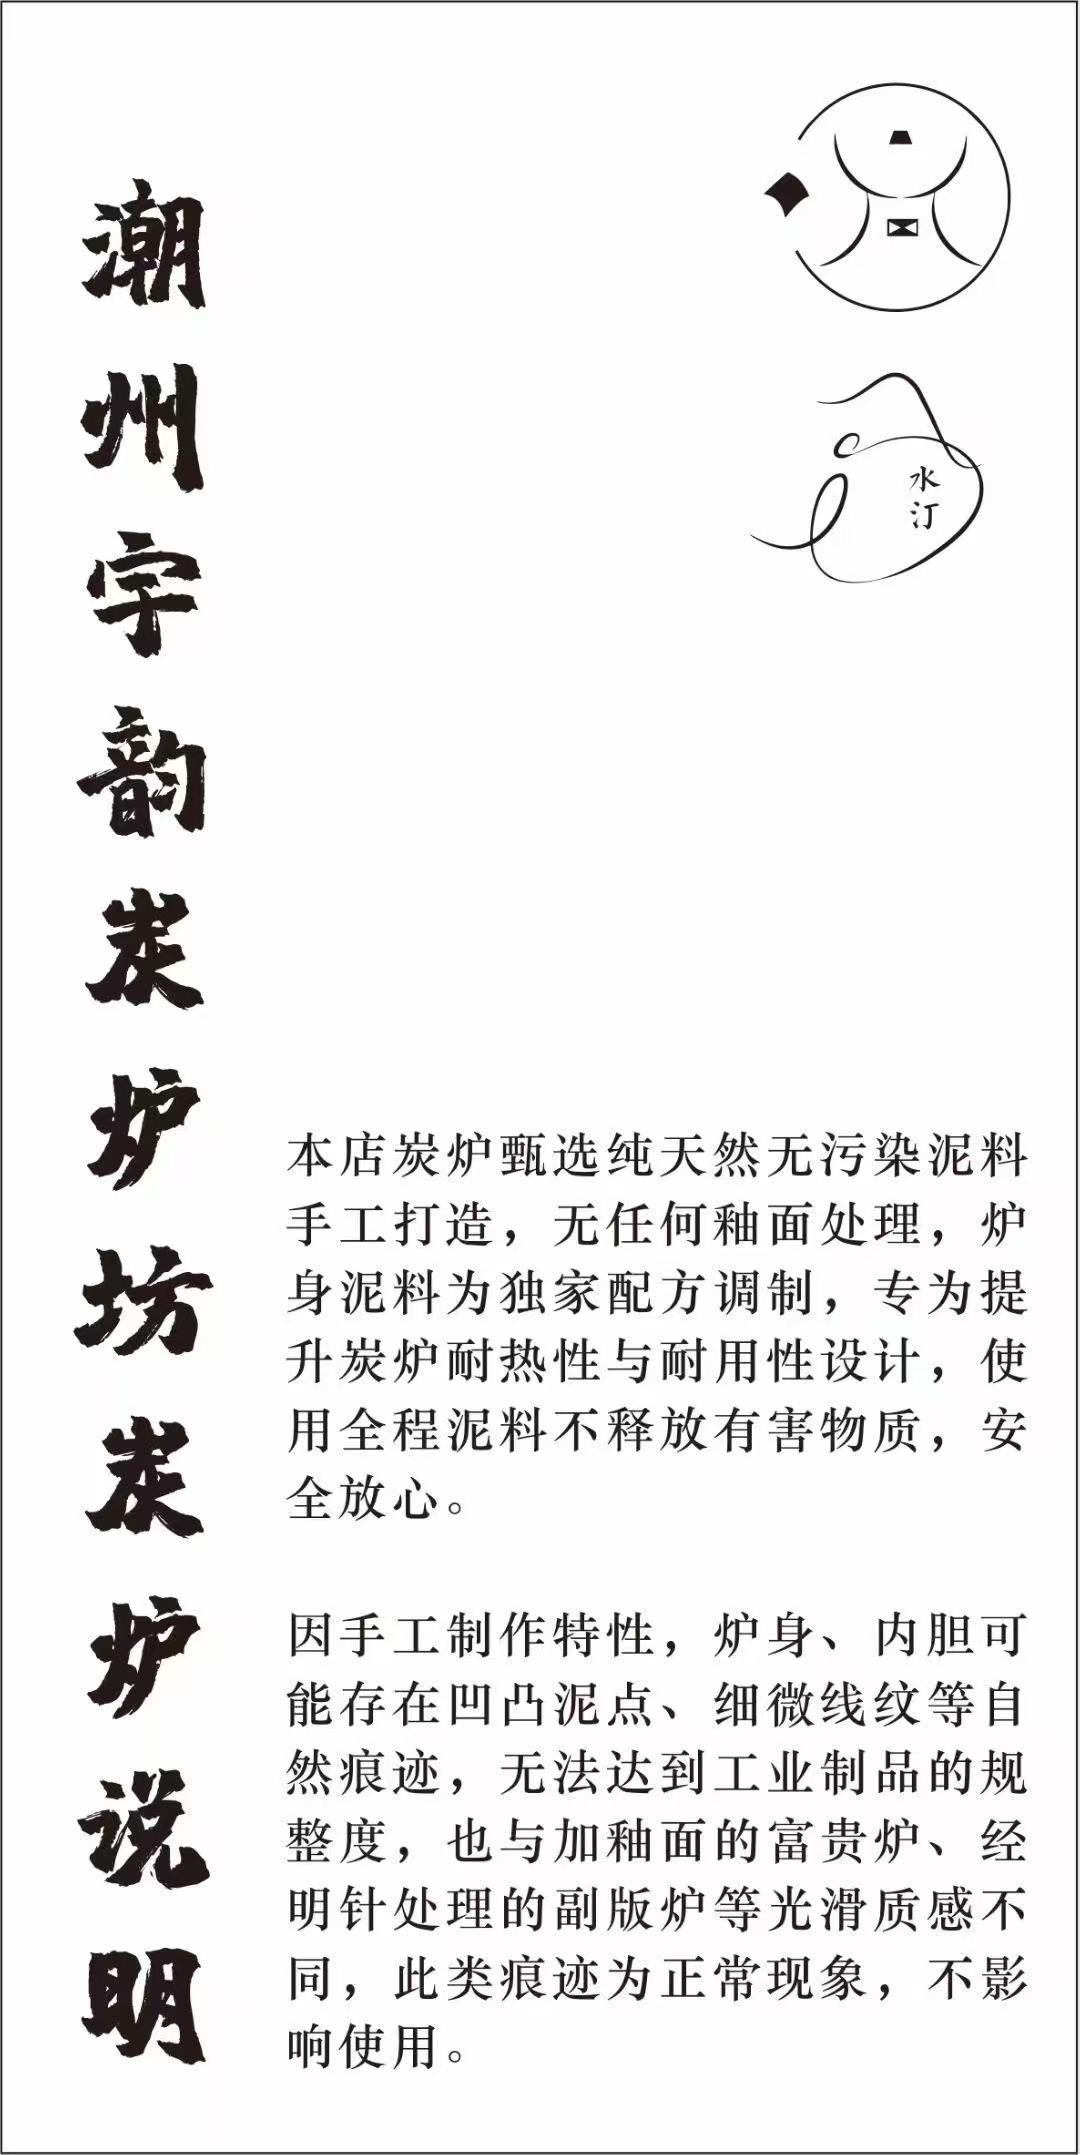 潮州宇韵炭炉坊炭炉说明
水汀
本店炭炉甄选纯天然无污染泥料
手工打造，无任何釉面处理，炉
身泥料为独家配方调制，专为提
升炭炉耐热性与耐用性设计，使
用全程泥料不释放有害物质，安
全放心。
因手工制作特性，炉身、内胆可
能存在凹凸泥点、细微线纹等自
然痕迹，无法达到工业制品的规
整度，也与加釉面的富贵炉、经
明针处理的副版炉等光滑质感不
同，此类痕迹为正常现象，不影
响使用。